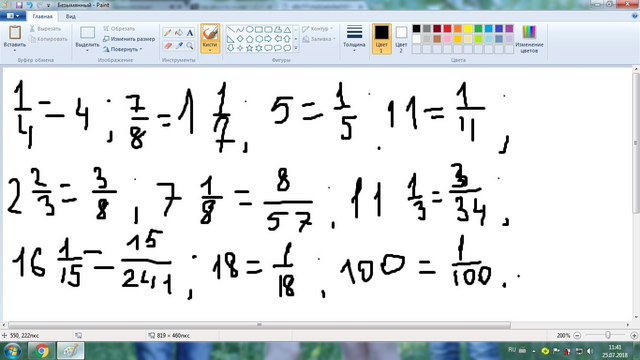 Безымянный - Paint
Главная Вид
Вставить Вырезать Копировать Выделить Обрезать Изменить размер Повернуть Кисти Контур Заливка Толщина Цвет 1 Цвет 2 Изменение цветов
Буфер обмена Изображение Инструменты Фигуры Цвета
1/4 = 4 ; 7/8 = 1 1/7 ; 5 = 1/5 . 11 = 1/11 ,
2 2/3 = 3/8 , 7 1/8 = 8/57 , 11 1/3 = 3/34 ,
16 1/15 = 15/241 ; 18 = 1/18 ; 100 = 1/100 .
550, 222пкс 819 × 460пкс 200%
RU 11:41
25.07.2018